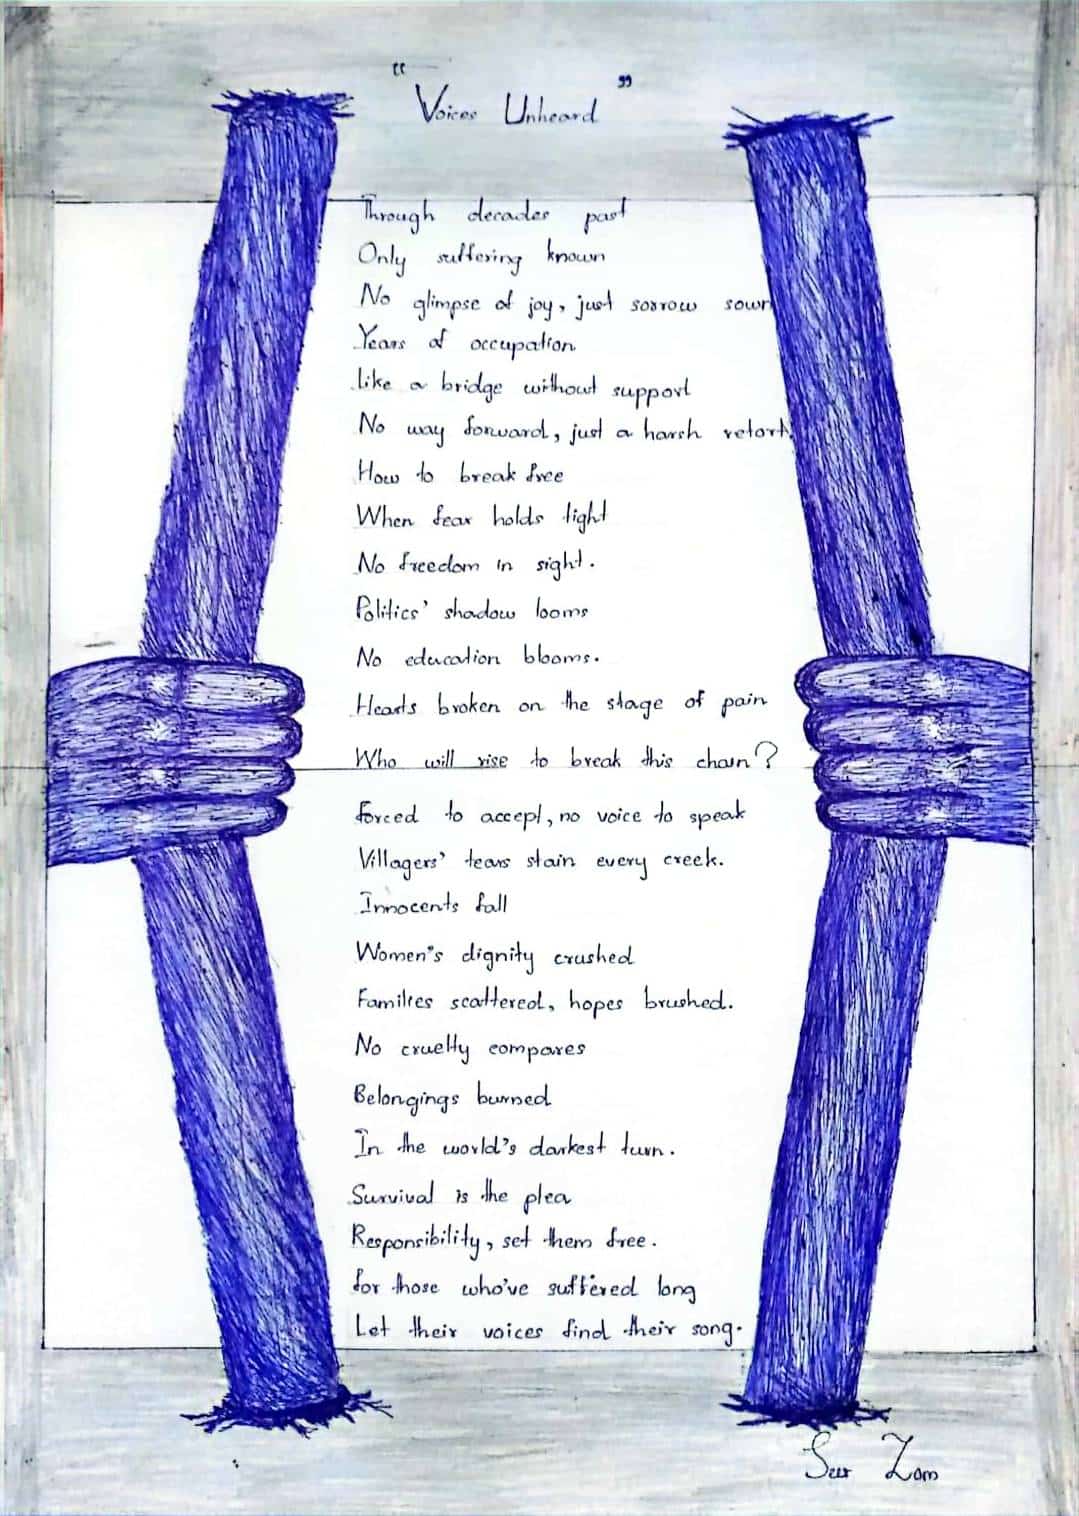 "Voices Unheard"
Through decades past
Only suffering known
No glimpse of joy, just sorrow sown
Years of occupation
like a bridge without support
No way forward, just a harsh retort.
How to break free
When fear holds tight
No freedom in sight.
Politics' shadow looms
No education blooms.
Hearts broken on the stage of pain
Who will rise to break this chain?
forced to accept, no voice to speak
Villagers' tears stain every creek.
Innocents fall
Women's dignity crushed
Families scattered, hopes brushed.
No cruelty compares
Belongings burned
In the world's darkest turn.
Survival is the plea
Responsibility, set them free.
for those who've suffered long
Let their voices find their song.
Zom